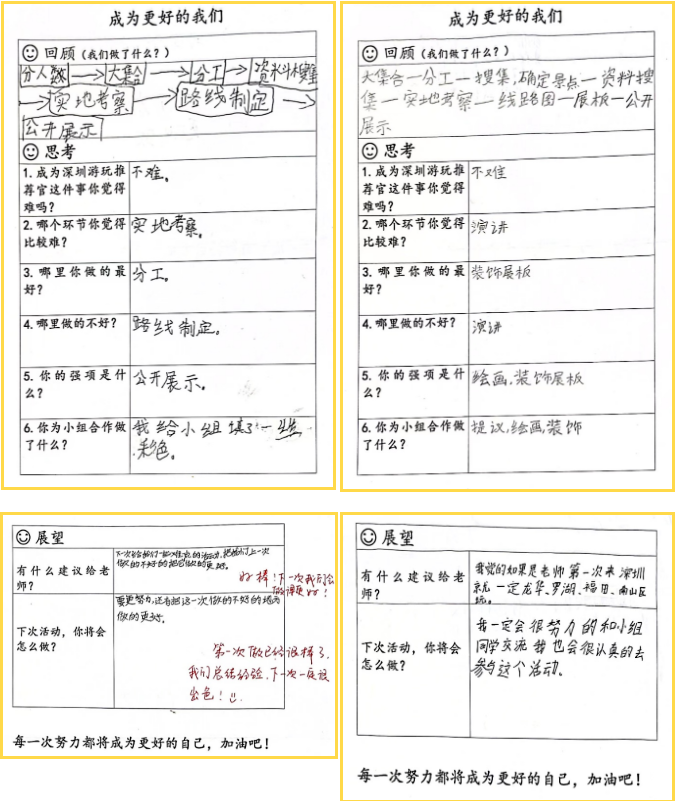 成为更好的我们
回顾（我们做了什么？）
分人数→大集合→分工→资料搜集
→实地考察→路线制定→
公开展示
思考
1.成为深圳游玩推
荐官这件事你觉得
难吗？
不难。
2.哪个环节你觉得
比较难？
实地考察。
3.哪里你做的最
好？
分工。
4.哪里做的不好？
路线制定。
5.你的强项是什
么？
公开展示。
6.你为小组合作做
了什么？
我给小组填了一丝
彩色。
成为更好的我们
回顾（我们做了什么？）
大集合一分工一搜集,确定景点一资料搜
集一实地考察一线路图一展板一公开
展示
思考
1.成为深圳游玩推
荐官这件事你觉得
难吗？
不难
2.哪个环节你觉得
比较难？
演讲
3.哪里你做的最
好？
装饰展板
4.哪里做的不好？
演讲
5.你的强项是什
么？
绘画,装饰展板
6.你为小组合作做
了什么？
提议,绘画,装饰
展望
有什么建议给老
师？
下一次多给我们一些难点的活动,把我们上一次
做的不好的地方做的更好。
好棒！下一次我们会
做得更好！
下次活动，你将会
怎么做？
要更努力,还有把这一次做的不好的地方
做的更好。
第一次做已经很棒了,
我们总结经验,下一次一定很
出色！
每一次努力都将成为更好的自己，加油吧！
展望
有什么建议给老
师？
我觉的如果是老师第一次来深圳
就一定龙华、罗湖、福田、南山区
玩。
下次活动，你将会
怎么做？
我一定会很努力的和小组
同学交流 我也会很认真的去
参与这个活动。
每一次努力都将成为更好的自己，加油吧！